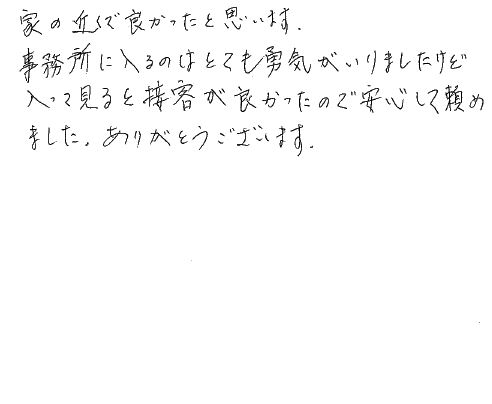 家の近くで良かったと思います.
事務所に入るのはとても勇気がいりましたけど
入って見ると接客が良かったので安心して頼め
ました。ありがとうございます.